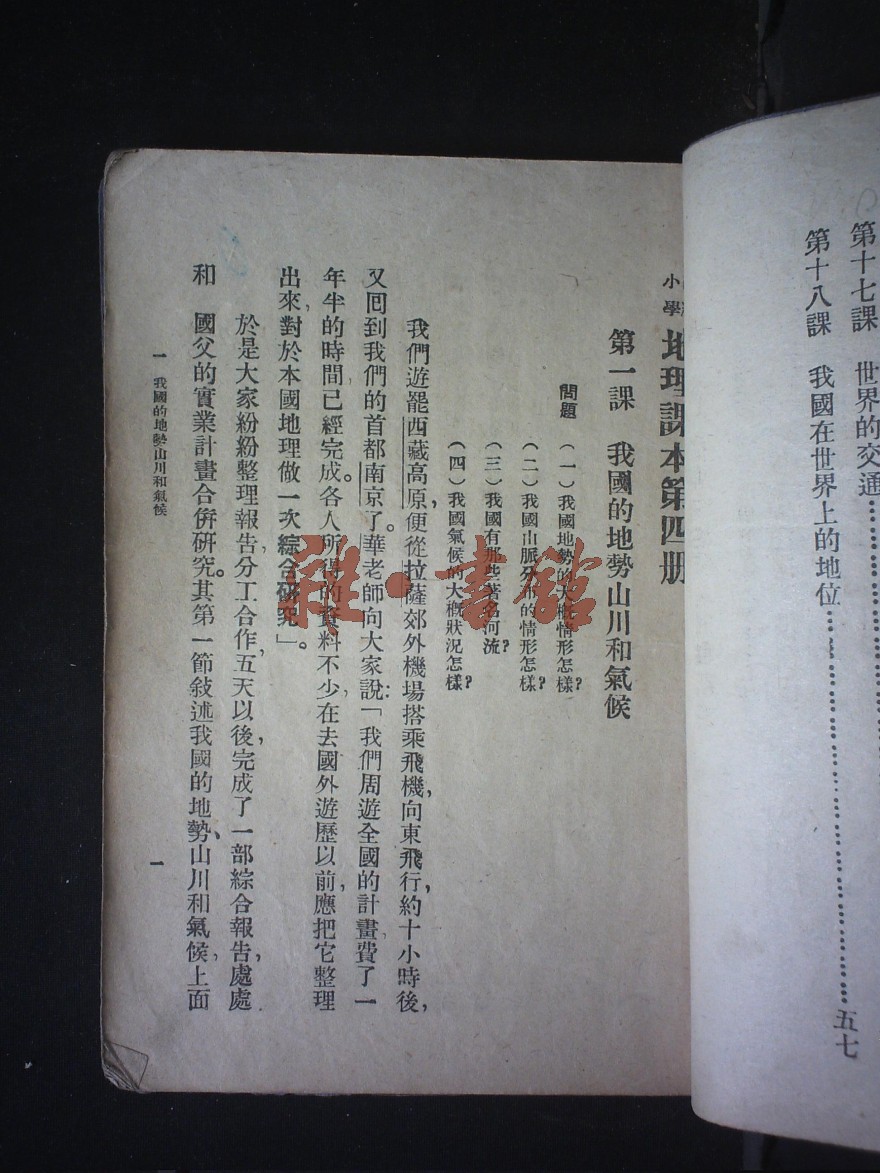 第十七課　世界的交通………………
第十八課　我國在世界上的地位………………五七
小學
地理課本第四册
第一課　我國的地勢山川和氣候
問題　（一）我國地勢的大概情形怎樣？
（二）我國山脈分布的情形怎樣？
（三）我國有那些著名河流？
（四）我國氣候的大概狀況怎樣？
我們遊罷西藏高原，便從拉薩郊外機場搭乘飛機，向東飛行，約十小時後，
又回到我們的首都南京了。華老師向大家說：「我們周遊全國的計畫，費了一
年半的時間，已經完成。各人所得的資料不少，在去國外遊歷以前，應把它整理
出來，對於本國地理做一次綜合研究」。
於是大家紛紛整理報告，分工合作，五天以後，完成了一部綜合報告，處處
和　國父的實業計畫合倂研究。其第一節敍述我國的地勢、山川和氣候，上面
一　我國的地勢山川和氣候
一
雜·書館